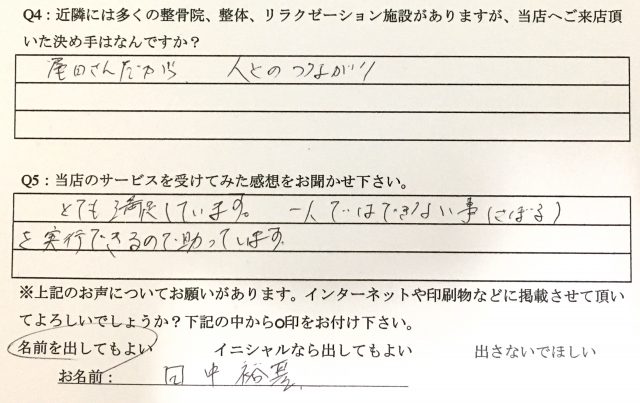 Q4：近隣には多くの整骨院、整体、リラクゼーション施設がありますが、当店へご来店頂
いた決め手はなんですか？
尾田さんだから 人とのつながり
Q5：当店のサービスを受けてみた感想をお聞かせ下さい。
とても満足しています。一人ではできない事(さぼる)
を実行できるので助ってします
※上記のお声についてお願いがあります。インターネットや印刷物などに掲載させて頂い
てよろしいでしょうか？下記の中からo印をお付け下さい。
名前を出してもよい イニシャルなら出してもよい 出さないでほしい
お名前： 田中裕